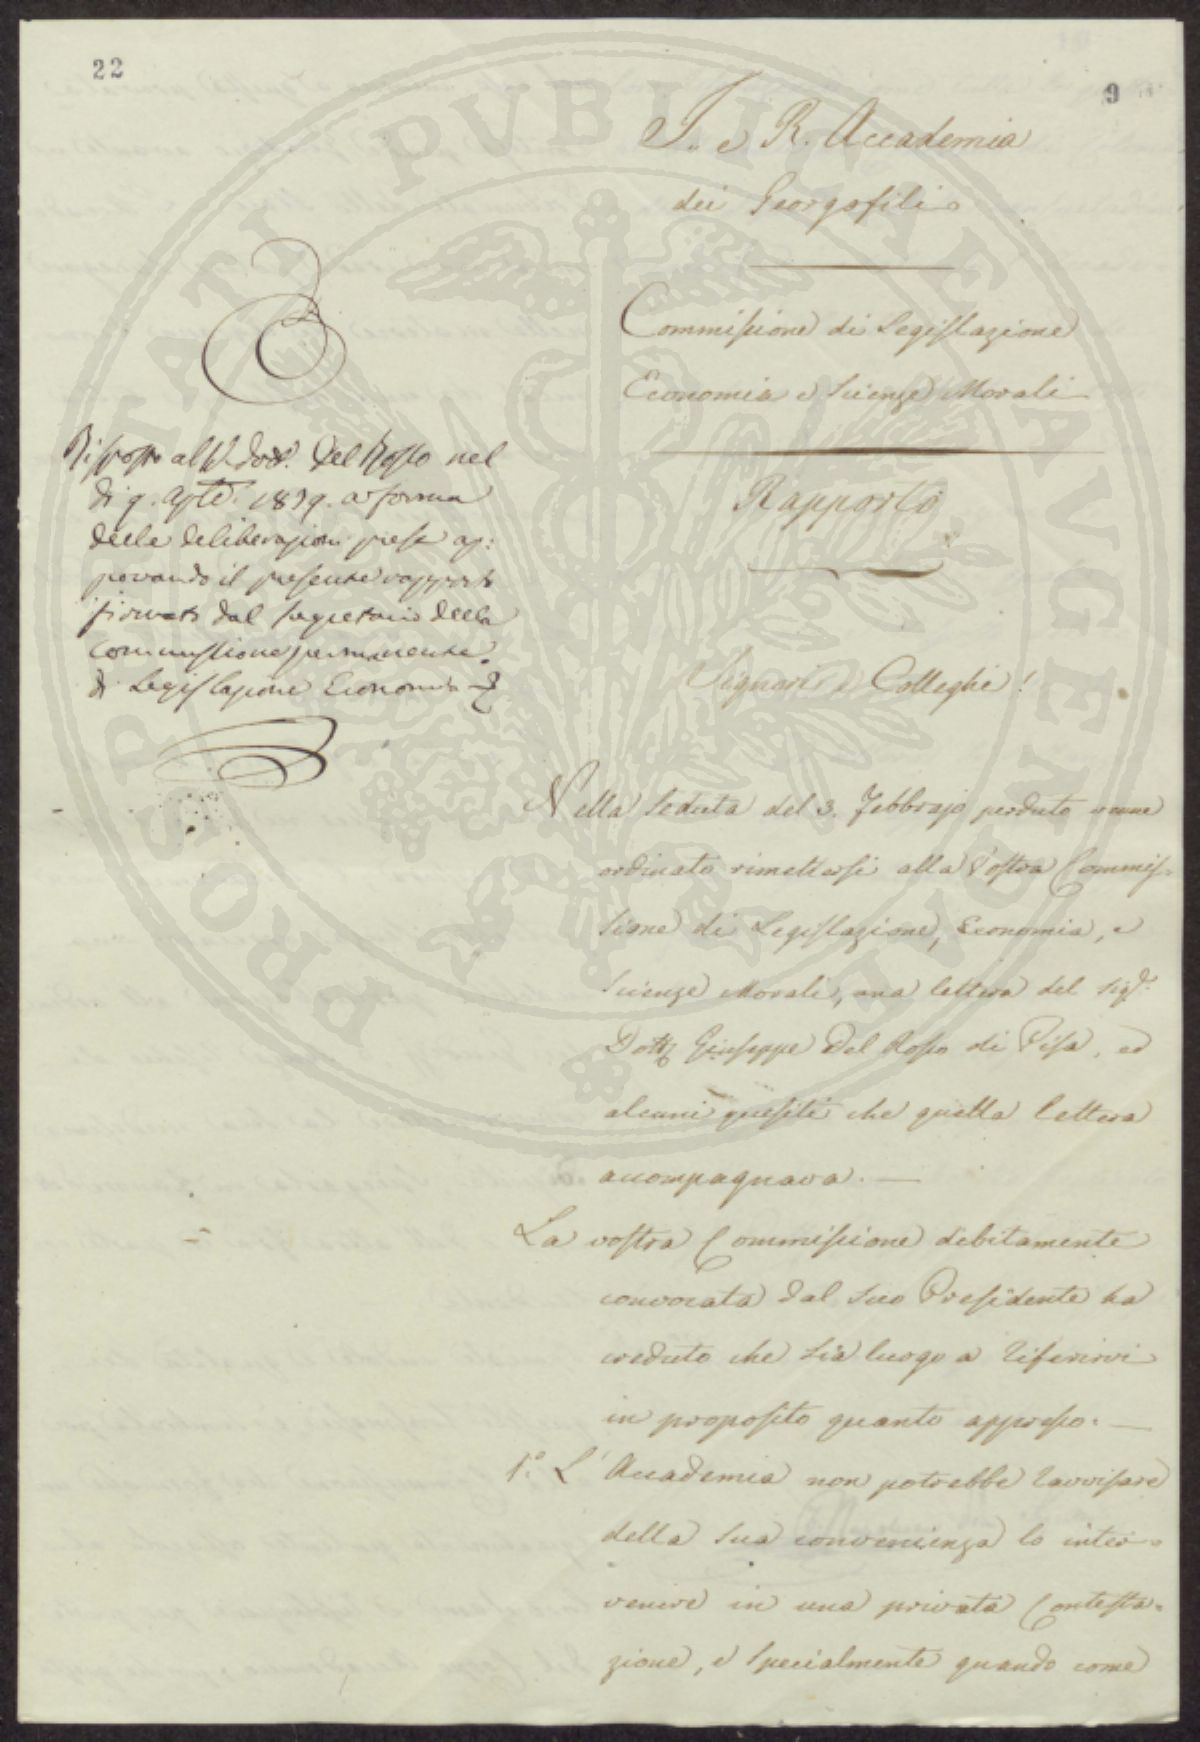 22
9
I. e R. Accademia
dei Georgofili
Commissione di Legislazione
Economia e Scienze Morali
Rapporto
Signori e Colleghi!
Risposto al Sr. Dott. Del Rosso nel
dì 9. Agto. 1839. a forma
delle deliberazioni prese ap:
provando il presente rapporto
firmato dal Segretario della
Commissione permanente
di Legislazione Economia
Nella Seduta del 3. Febbrajo perduto venne
ordinato rimettersi alla Vostra Commis=
sione di Legislazione, Economia, e
Scienze Morali, una lettera del Sigr.
Dott. Giuseppe Del Rosso di Pisa, ed
alcuni quesiti che quella lettera
accompagnava. —
La vostra Commissione debitamente
convocata dal suo Presidente ha
creduto che sia luogo a riferirvi
in proposito quanto appresso. —
1.° L'Accademia non potrebbe ravvisare
della sua convenienza lo inter=
venire in una privata Contesta=
zione, e specialmente quando come
PROSPERITATI PUBLICAE AUGENDAE